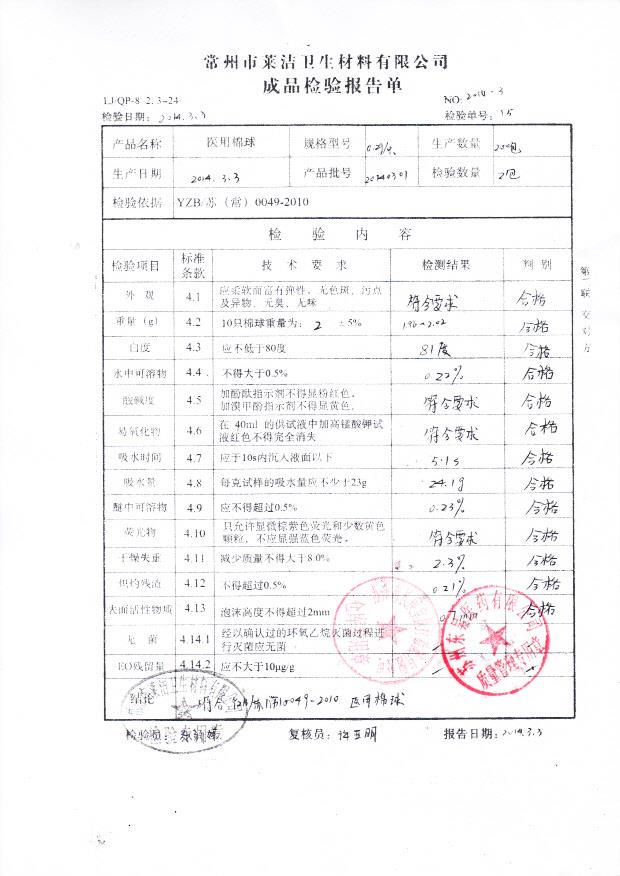 常州市莱洁卫生材料有限公司
成品检验报告单
LJ/QP-8.2.3-24 NO: 2014-3
检验日期: 2014.3.3 检验单号: 15
产品名称 医用棉球 规格型号 0.2g/ 生产数量 200包
生产日期 2014.3.3 产品批号 20140301 检验数量 2包
检验依据 YZB/苏(常)0049-2010
检 验 内 容
检验项目 标准条款 技 术 要 求 检测结果 判 别
外 观 4.1 应柔软而富有弹性，无色斑、污点
及异物，无臭、无味 符合要求 合格
重量(g) 4.2 10只棉球重量为: 2 ±5% 1.96~2.02 合格
白度 4.3 应不低于80度 81度 合格
水中可溶物 4.4 不得大于0.5% 0.22% 合格
酸碱度 4.5 加酚酞指示剂不得显粉红色，
加溴甲酚指示剂不得显黄色。 符合要求 合格
易氧化物 4.6 在 40ml 的供试液中加高锰酸钾试
液红色不得完全消失 符合要求 合格
吸水时间 4.7 应于10s内沉入液面以下 5.1s 合格
吸水量 4.8 每克试样的吸水量应不少于23g 24.1g 合格
醚中可溶物 4.9 应不得超过0.5% 0.23% 合格
荧光物 4.10 只允许显微棕紫色荧光和少数黄色
颗粒，不应显强蓝色荧光。 符合要求 合格
干燥失重 4.11 减少质量不得大于8.0% 2.3% 合格
炽灼残渣 4.12 不得超过0.5% 0.21% 合格
表面活性物质 4.13 泡沫高度不得超过2mm mm 合格
无 菌 4.14.1 经以确认过的环氧乙烷灭菌过程进
行灭菌应无菌 /
EO残留量 4.14.2 应不大于10μg/g /
结论 符合 0049-2010 医用棉球
检验员: 复核员: 报告日期: 2014.3.3
第一联 交对方
莱洁卫生材料有限
检验专用章
医药有限公司
质量管理专用章